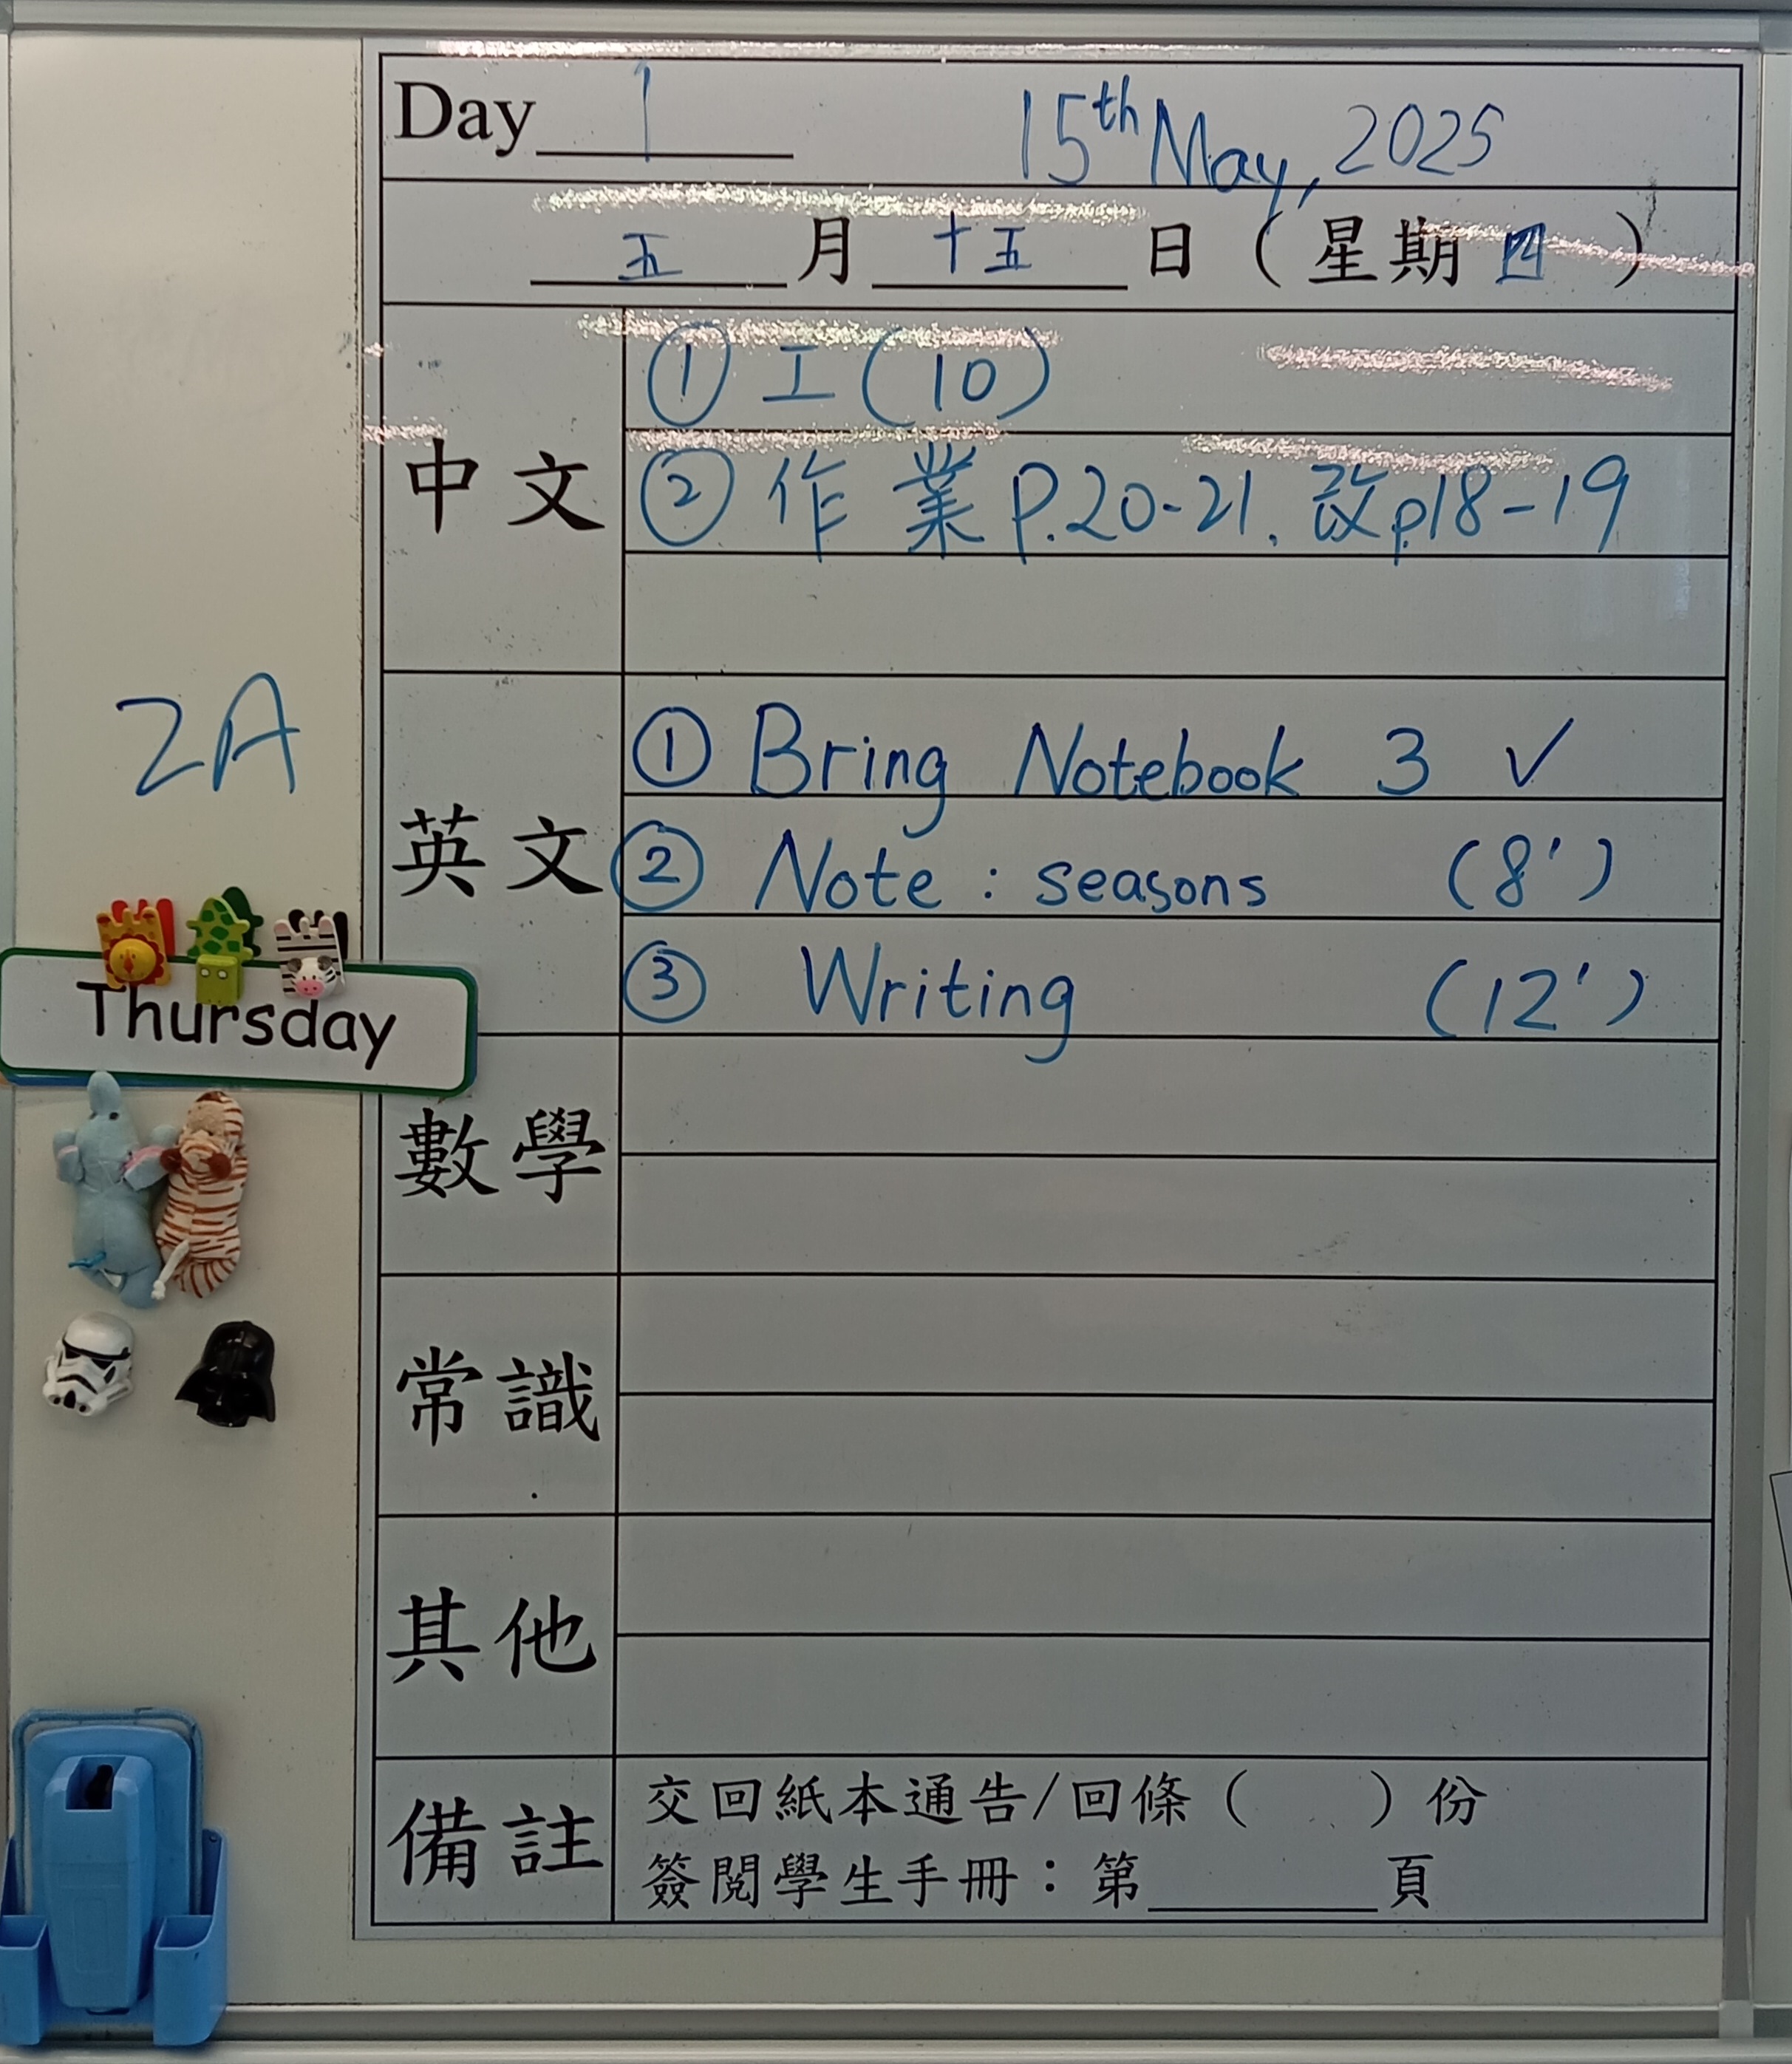 Day 1 15th May, 2025
五 月 十五 日 ( 星期 四 )
中文
① 工(10)
② 作業 P.20-21. 改p18-19
2A
英文
① Bring Notebook 3 ✓
② Note : seasons (8')
③ Writing (12')
Thursday
數學
常識
其他
備註
交回紙本通告/回條 ( ) 份
簽閱學生手冊：第______頁